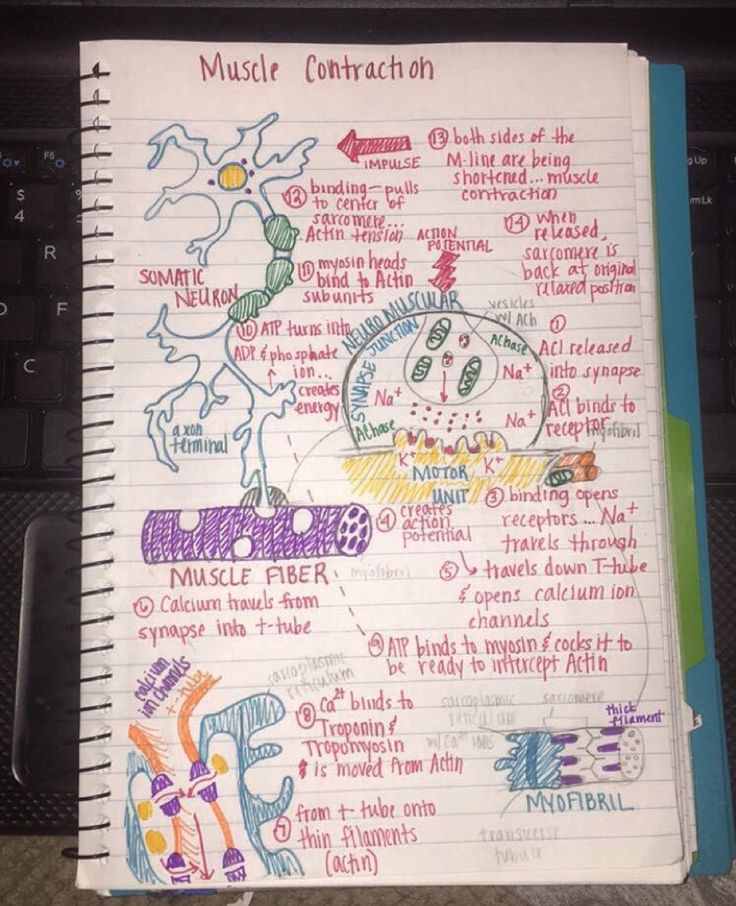 Muscle Contraction
IMPULSE
⑬ both sides of the
M-line are being
shortened... muscle
contraction
⑫ binding-pulls
to center of
sarcomere...
Actin tension
ACTION
POTENTIAL
⑭ when
released,
sarcomere is
back at original
relaxed position
SOMATIC
NEURON
⑪ myosin heads
bind to Actin
subunits
NEUROMUSCULAR
SYNAPSE JUNCTION
vesicles
w/ ACh
AChase
Na+
Na+
Na+
AChase
K+
K+
MOTOR
UNIT
① 
ACl released
into synapse
②
ACl binds to
receptor
myofibril
⑩ ATP turns into
ADP & phosphate
ion...
creates
energy
axon
terminal
③ binding opens
receptors... Na+
travels through
④ creates
action
potential
⑤ travels down T-tube
& opens calcium ion
channels
MUSCLE FIBER
myofibril
⑥ Calcium travels from
synapse into t-tube
⑨ ATP binds to myosin & cocks it to
be ready to intercept Actin
calcium
ion channels
t-tube
sarcoplasmic
reticulum
⑧ Ca2+ binds to
Troponin &
Tropomyosin
is moved from Actin
⑦ from t-tube onto
thin filaments
(actin)
sarcoplasmic
w/ Ca2+ ions
sarcomere
thick
filament
MYOFIBRIL
transverse
tubule
F5
$
4
R
D
F
C